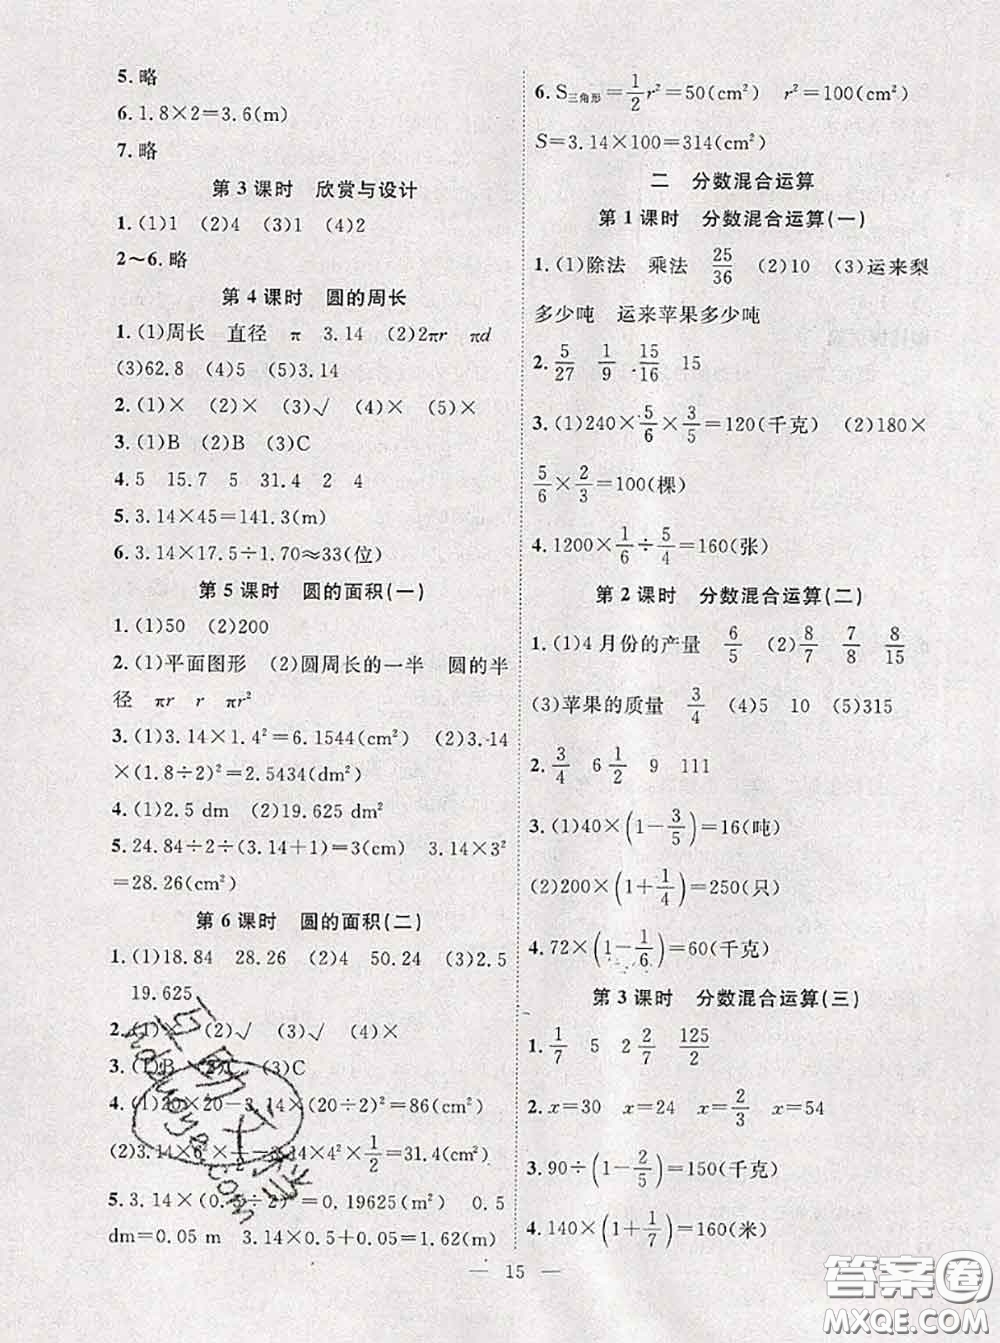 5.略
6.1.8×2=3.6(m)
7.略
第3课时 欣赏与设计
1.(1)1 (2)4 (3)1 (4)2
2~6.略
第4课时 圆的周长
1.(1)周长 直径 π 3.14 (2)2πr πd
(3)62.8 (4)5 (5)3.14
2.(1)× (2)× (3)√ (4)× (5)×
3.(1)B (2)B (3)C
4.5 15.7 5 31.4 2 4
5.3.14×45=141.3(m)
6.3.14×17.5÷1.70≈33(位)
第5课时 圆的面积(一)
1.(1)50 (2)200
2.(1)平面图形 (2)圆周长的一半 圆的半
径 πr r πr²
3.(1)3.14×1.4²=6.1544(cm²) (2)3.14
×(1.8÷2)²=2.5434(dm²)
4.(1)2.5 dm (2)19.625 dm²
5.24.84÷2÷(3.14+1)=3(cm) 3.14×3²
=28.26(cm²)
第6课时 圆的面积(二)
1.(1)18.84 28.26 (2)4 50.24 (3)2.5
19.625
2.(1)× (2)√ (3)√ (4)×
3.(1)B (2)C (3)C
4.(1)20×20-3.14×(20÷2)²=86(cm²)
(2)3.14×6²×1/2-3.14×4²×1/2=31.4(cm²)
5.3.14×(0.5÷2)²=0.19625(m²) 0.5
dm=0.05 m 3.14×0.5+0.05=1.62(m)
6.S三角形=1/2r²=50(cm²) r²=100(cm²)
S=3.14×100=314(cm²)
二 分数混合运算
第1课时 分数混合运算(一)
1.(1)除法 乘法 25/36 (2)10 (3)运来梨
多少吨 运来苹果多少吨
2.5/27 1/9 15/16 15
3.(1)240×5/6×3/5=120(千克) (2)180×
5/6×2/3=100(棵)
4.1200×1/6÷5/4=160(张)
第2课时 分数混合运算(二)
1.(1)4月份的产量 6/5 (2)8/7 7/8 8/15
(3)苹果的质量 3/4 (4)5 10 (5)315
2.3/4 6 1/2 9 111
3.(1)40×(1-3/5)=16(吨)
(2)200×(1+1/4)=250(只)
4.72×(1-1/6)=60(千克)
第3课时 分数混合运算(三)
1.1/7 5 2 2/7 125/2
2.x=30 x=24 x=2/3 x=54
3.90÷(1-2/5)=150(千克)
4.140×(1+1/7)=160(米)
15
答案圈
MXQE.COM